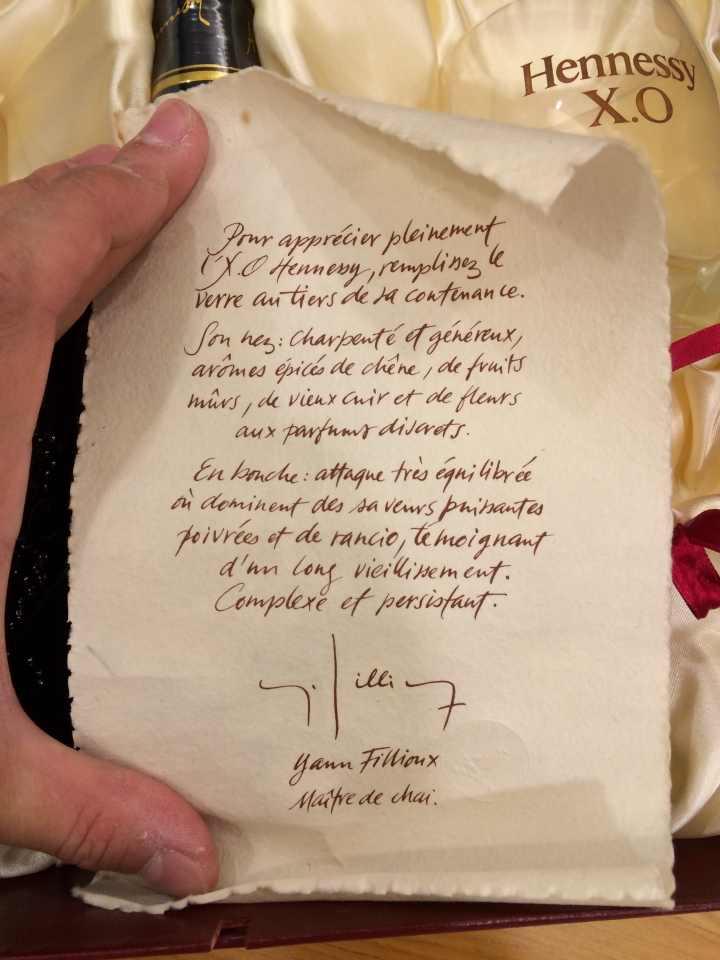 Hennessy
X.O
Pour apprécier pleinement
l'X.O Hennessy, remplissez le
verre au tiers de sa contenance.
Son nez: Charpenté et généreux,
arômes épicés de chêne, de fruits
mûrs, de vieux cuir et de fleurs
aux parfums discrets.
En bouche: attaque très équilibrée
où dominent des saveurs puissantes
poivrées et de rancio, témoignant
d'un long vieillissement.
Complexe et persistant.
Yann Fillioux
Maître de chai.